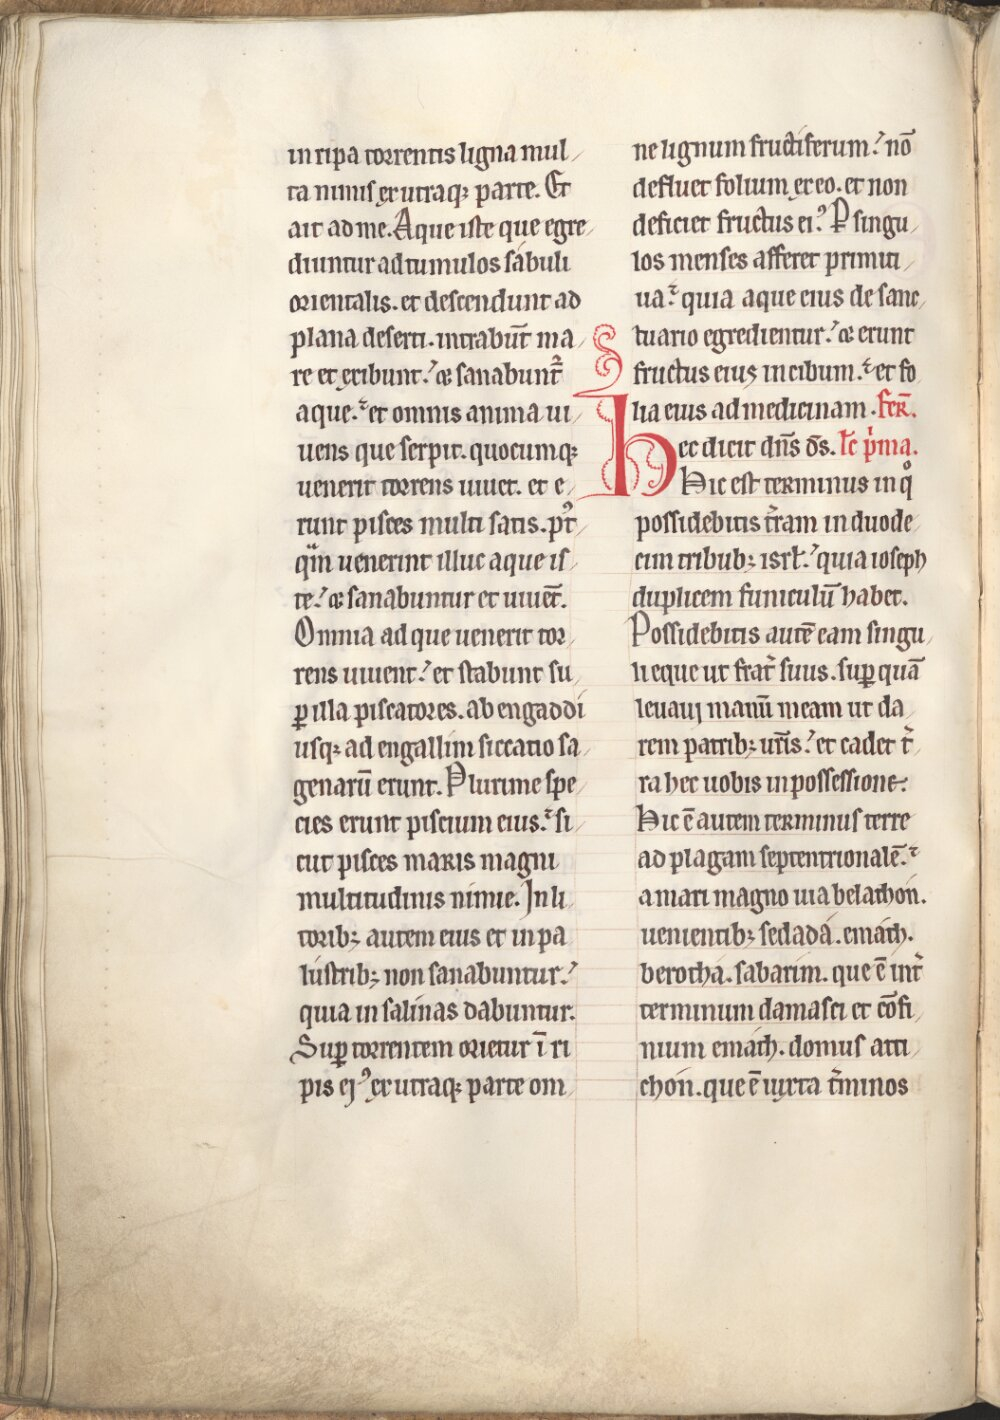 in ripa torrentis ligna mul
ta nimis ex utraqꝫ parte. Et
ait ad me. Aque iste que egre
diuntur ad tumulos sabuli
orientalis. et descendunt ad
plana deserti. intrabūt ma
re et exibunt. ⁊ sanabunt᷑
aque. et omnis anima ui
uens que serpit. quocumqꝫ
uenerit torrens uiuet. et e
runt pisces multi satis. pꝰt
qͣm uenerint illuc aque is
te. ⁊ sanabuntur et uiuēt.
Omnia ad que uenerit tor
rens uiuent. et stabunt su
ꝑ illa piscatores. ab engaddi
usqꝫ ad engallim siccatio sa
genarū erunt. Plurime spe
cies erunt piscium eius. si
cut pisces maris magni
multitudinis nimie. In li
toribꝫ autem eius et in pa
lustribꝫ non sanabuntur.
quia in salinas dabuntur.
Suꝑ torrentem orietur ī ri
pis eiꝰ ex utraqꝫ parte om
ne lignum fructiferum. nō
defluet folium ex eo. et non
deficiet fructus eiꝰ. Ꝑ singu
los menses afferet primiti
ua. quia aque eius de sanc
tuario egredientur. ⁊ erunt
fructus eius in cibum. et fo
lia eius ad medicinam. fer̄.
Hec dicit dn̄s ds̄. lc̄ pͥma.
Hic est terminus in qͦ
possidebitis t̄ram in duode
cim tribubꝫ isrł. quia ioseph
duplicem funiculū habet.
Possidebitis autē eam singu
li eque ut frat̄ suus. suꝑ quā
leuaui manū meam ut da
rem patribꝫ ur̄is. et cadet t̄
ra hec uobis in possessione.
Hic ē autem terminus terre
ad plagam septentrionalē.
a mari magno uia bethalon.
uenientibꝫ sedada. emath.
berotha. sabarim. que ē int̄
terminum damasci et cōfi
nium emath. domus atti
chon. que ē iuxta t̄minos